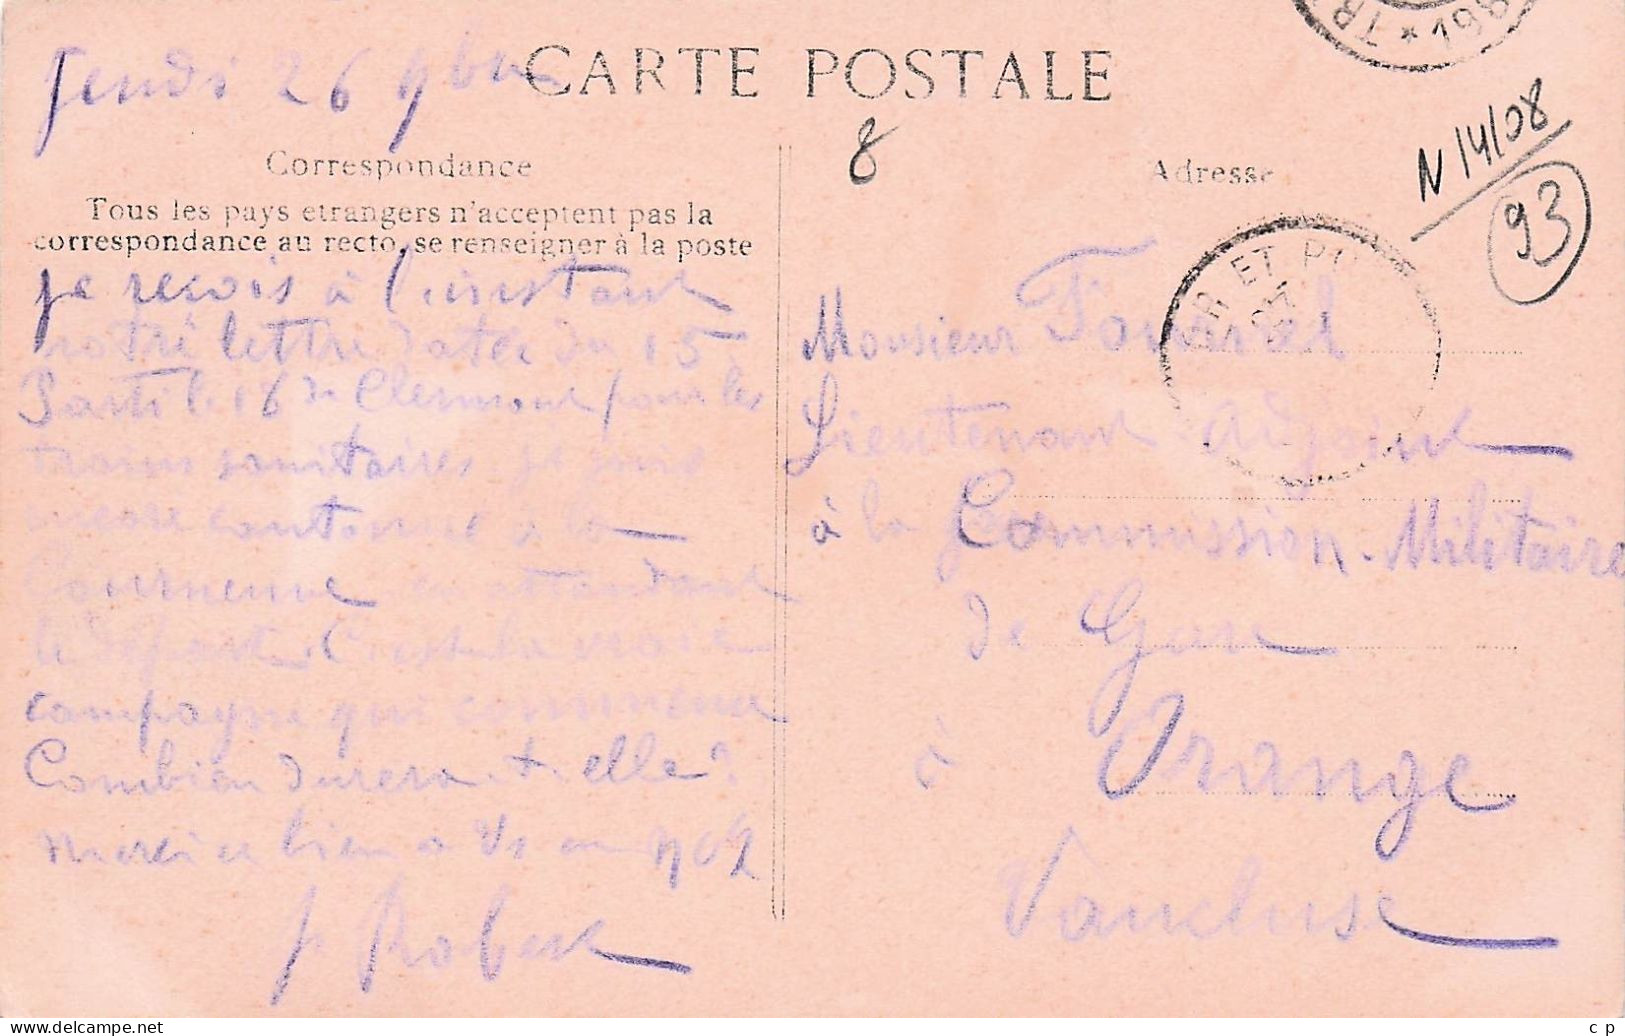 Jeudi 26 9bre
CARTE POSTALE
8
N 14/08
93
Correspondance
Adresse
Tous les pays etrangers n'acceptent pas la
correspondance au recto, se renseigner à la poste
R ET PO
je reçois à l'instant
votre lettre datée du 15
Parti le 16 de Clermont pour les
trains sanitaires. je suis
encore cantonné à la
Courneuve en attendant
le départ. C'est la vraie
campagne qui commence
Combien durera-t-elle?
Merci et bien à Vs
P Robert
Monsieur
Lieutenant Adjoint
à la Commission Militaire
de Gare
à Orange
Vaucluse